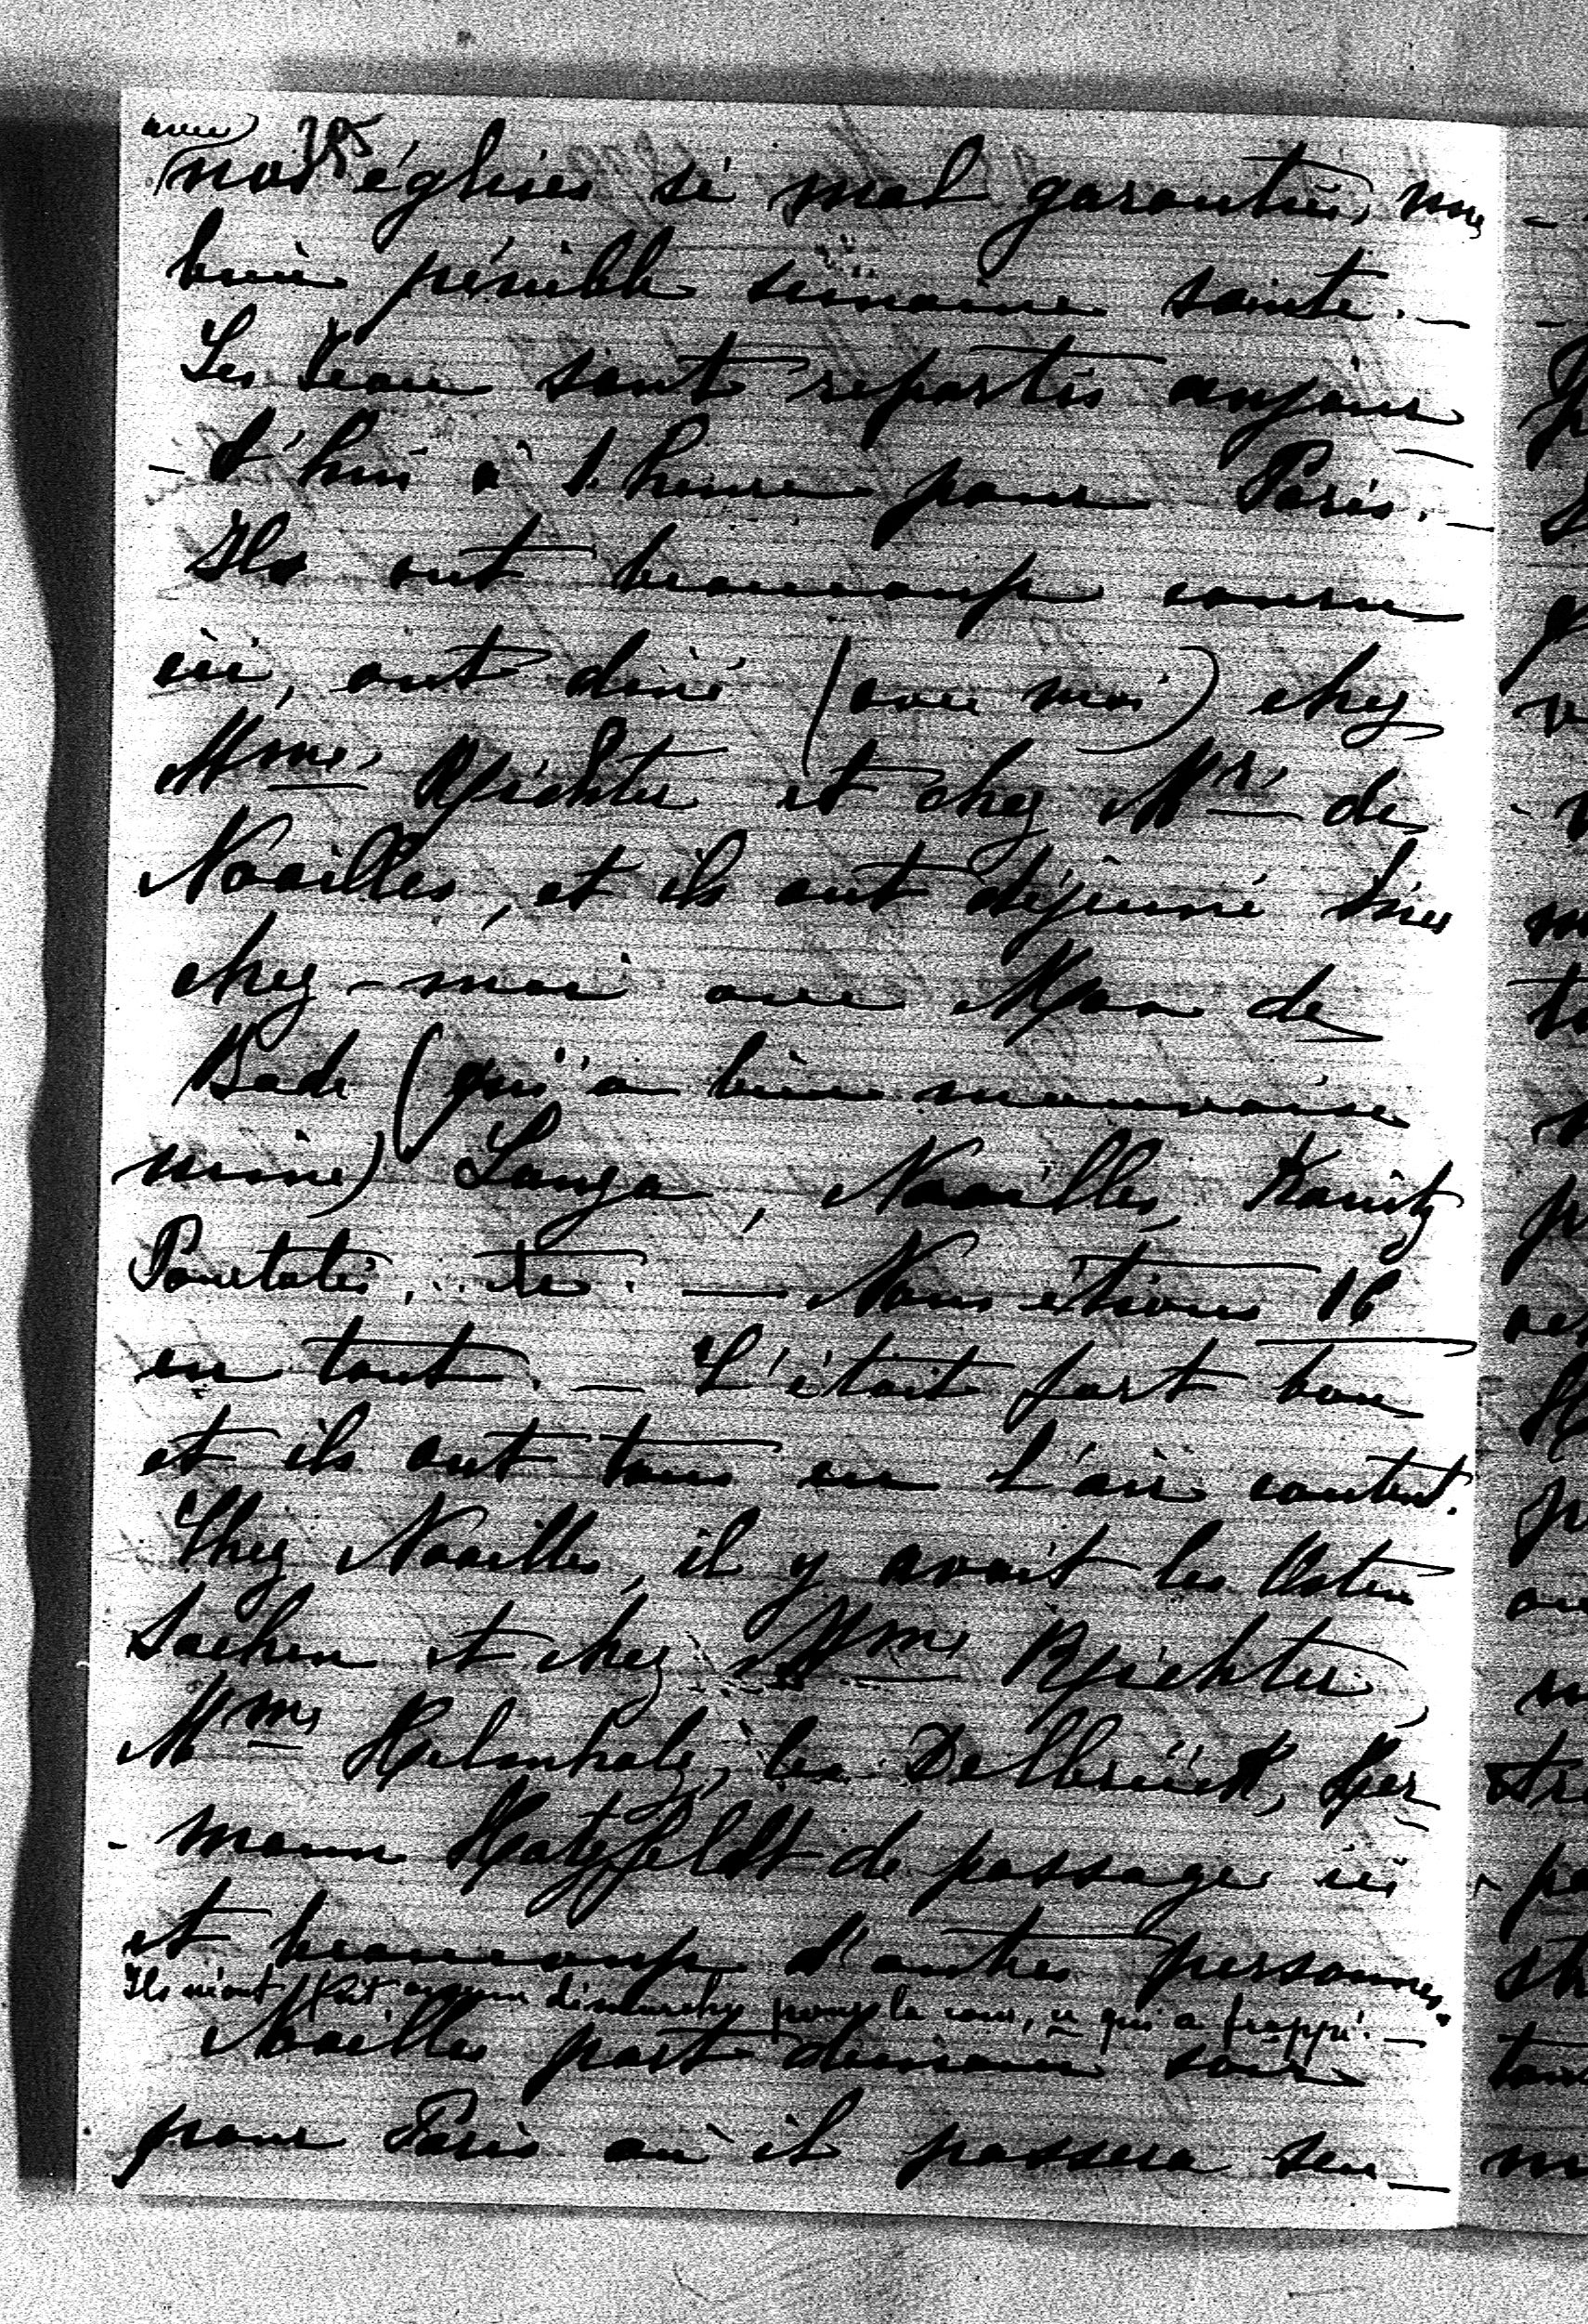 avec 395
nos églises si mal garanties, une
bien pénible semaine sainte. —
Les Jean sont repartis aujour
- d'hui à 1 heure pour Paris. —
Ils ont beaucoup couru
ici, ont diné (avec moi) chez
Mme. Richter et chez Mr. de
Noailles, et ils ont déjeuné hier
chez-moi avec Max de
Bade (qui a bien mauvaise
mine) Lanza, Noailles, Kanitz
Pourtalès, etc. — Nous étions 16
en tout. — C'était fort bon
et ils ont tous eu l'air content.
Chez Noailles, il y avait les Osten
Sacken et chez Mme Richter,
Mme Helmholtz, les Delbrück, Her
- mann Hatzfeldt de passage ici
et beaucoup d'autres personnes.
Ils n'ont fait aucune démarche pour la cour, ce qui a frappé. —
Noailles part demain soir
pour Paris où il passera seu —